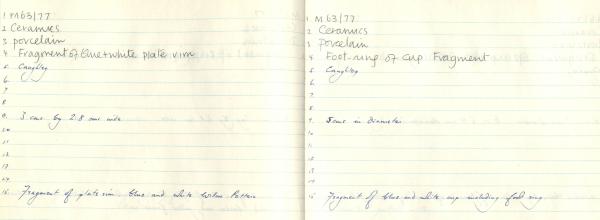 1 M63/77
2 Ceramics
3 porcelain
4 Fragment of blue + white plate rim
5 Caughley
6.
7
8
9. 3 cms by 2.8 cms wide
10
11
12
13
14
15. Fragment of plate rim. blue and white Willow Pattern
1 M63/77
2 Ceramics
3 Porcelain
4 Foot-ring of cup Fragment
5 Caughley
6.
7
8
9. 5cms in Diameter
10
11
12
13
14
15 Fragment of blue and white cup including foot ring